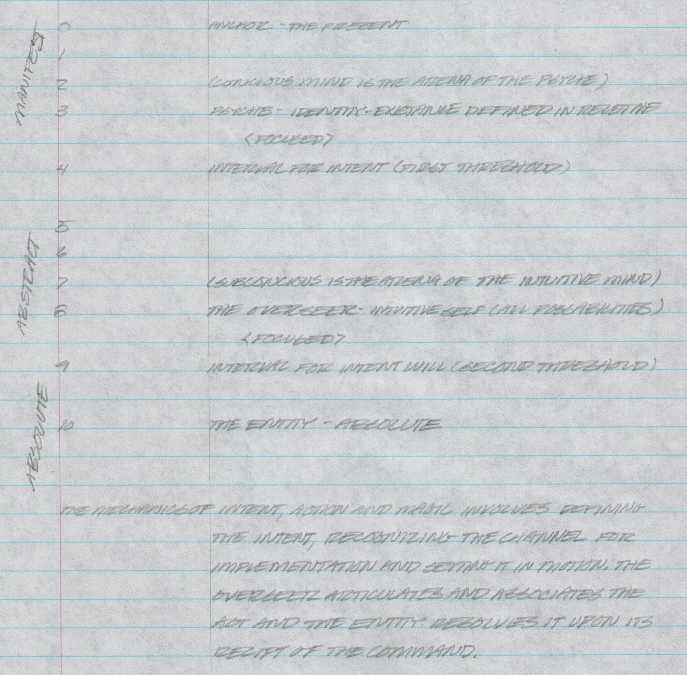 MANIFEST
0 ANCHOR - THE PRESENT
1
2 (CONCIOUS MIND IS THE ARENA OF THE PSYCHE)
3 PSYCHE - IDENTITY - EXISTANCE DEFINED IN RELETIVE
<FOCUSED>
4 INTERVAL FOR INTENT (FIRST THRESHOLD)
ABSTRACT
5
6
7 (SUBCONCIOUS IS THE ARENA OF THE INTUITIVE MIND)
8 THE OVERSEER - INTUITIVE SELF (ALL POSSABILITIES)
<FOCUSED>
9 INTERVAL FOR INTENT WILL (SECOND THRESHOLD)
ABSOLUTE
10 THE ENTITY - ABSOLUTE
THE MECHANICS OF INTENT, ACTION AND MAGIC INVOLVES DEFINING
THE INTENT, RECOGNIZING THE CHANNEL FOR
IMPLEMENTATION AND SETTING IT IN MOTION. THE
OVERSEER ARTICULATES AND ASSOCIATES THE
ACT AND THE ENTITY RESOLVES IT UPON ITS
RECIPT OF THE COMMAND.